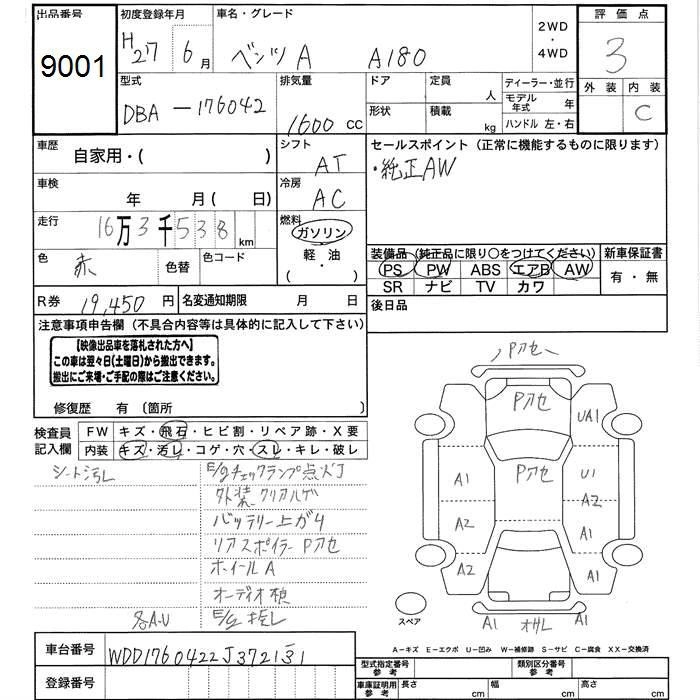 出品番号
9001
初度登録年月
H27 6月
車名・グレード
ベンツA A180
2WD
・
4WD
評価点
3
外装 内装
C
型式
DBA-176042
排気量
1600 cc
ドア
定員
人
形状
積載
kg
ディーラー・並行
モデル年式 年
ハンドル 左・右
車歴
自家用・( )
シフト
AT
セールスポイント (正常に機能するものに限ります)
・純正AW
車検
年 月( 日)
冷房
AC
走行
16万3千538km
燃料
ガソリン
・
軽・油
( )
色
赤
色替
色コード
装備品 (純正品に限り○をつけてください)
PS PW ABS エアB AW
SR ナビ TV カワ
新車保証書
有・無
R券 19,450円
名変通知期限 月 日
後日品
注意事項申告欄 (不具合内容等は具体的に記入して下さい)
【映像出品車を落札された方へ】
この車は翌々日(土曜日)から搬出できます。
搬出にご来場・ご手配の際はご注意ください。
修復歴 有 〔箇所 〕
検査員記入欄
FW キズ・飛石・ヒビ割・リペア跡・X要
内装 キズ・汚レ・コゲ・穴・スレ・キレ・破レ
シート汚レ
E/gチェックランプ点灯
外装クリアハゲ
バッテリー上がり
リアスポイラーPアセ
ホイールA
オーディオ検
各A・U
Pアセ
Pアセ
UA1
Pアセ
A1
U1
A2
A2
A1
A2
A1
A1
スペア
A-キズ E-エクボ U-凹み W-補修跡 S-サビ C-腐食 XX-交換済
車台番号
WDD1760422J372131
登録番号
型式指定番号 参考
類別区分番号 参考
車庫証明用 参考
長さ cm
幅 cm
高さ cm